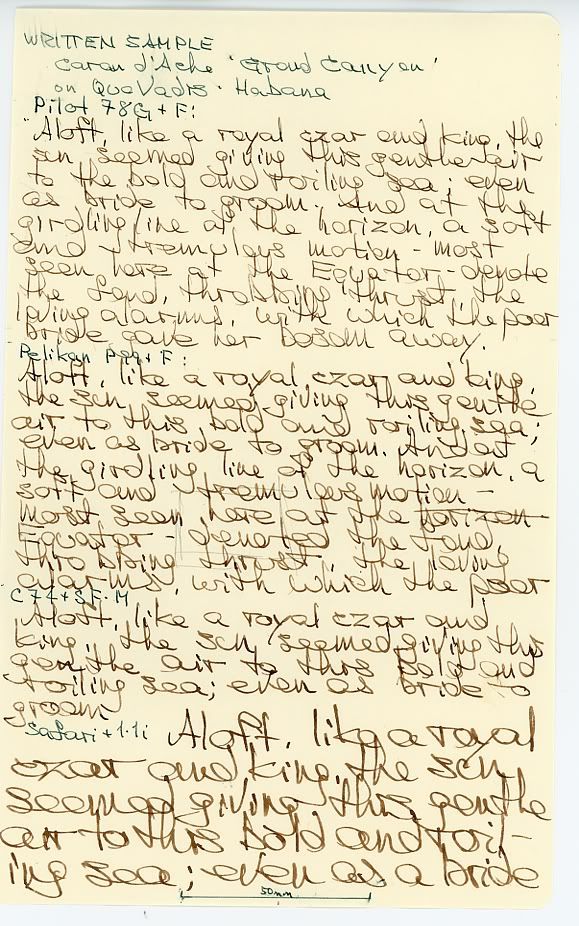 WRITTEN SAMPLE
Caran d'Ache 'Grand Canyon'
on QuoVadis · Habana
Pilot 78G + F:
"Aloft, like a royal czar and king, the
sun seemed giving this gentle air
to the bold and roiling sea; even
as bride to groom. And at the
girdling line of the horizon, a soft
and tremulous motion - most
seen here at the Equator - denote
the fond, throbbing thrust, the
loving alarms, with which the poor
bride gave her bosom away.
Pelikan P99 + F:
Aloft, like a royal czar and king,
the sun seemed giving this gentle
air to this bold and roiling sea;
even as bride to groom. And at
the girdling line of the horizon, a
soft and tremulous motion -
most seen here at the horizon
Equator - denoted the fond,
throbbing thrust, the loving
alarms, with which the poor
C74 + SF·M
Aloft, like a royal czar and
king, the sun seemed giving this
gentle air to this bold and
roiling sea; even as bride to
groom
Safari + 1.1i Aloft, like a royal
czar and king, the sun
seemed giving this gentle
air to this bold and roil-
ing sea; even as a bride
50mm